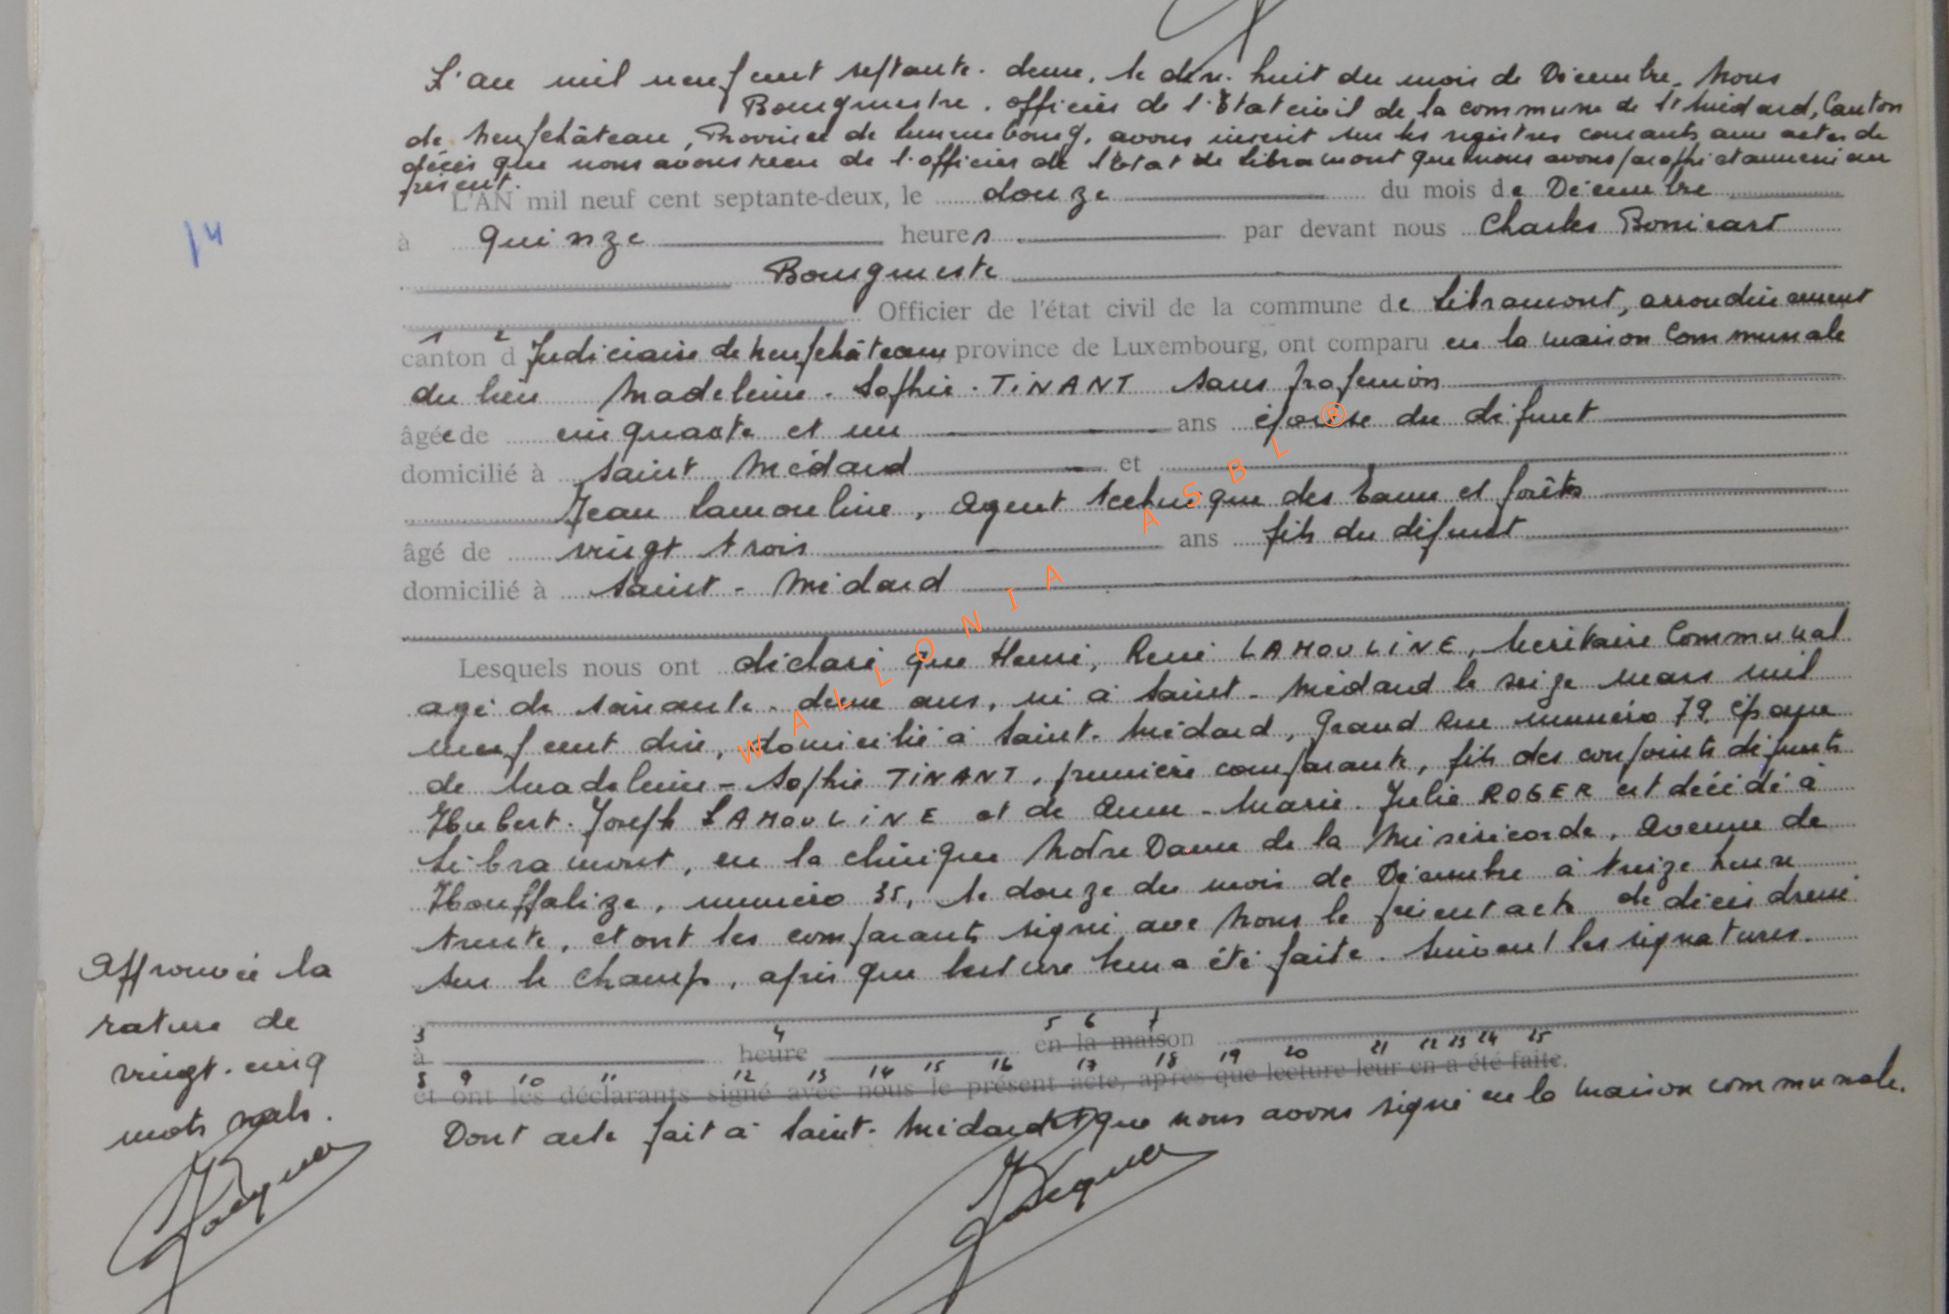 L'an mil neuf cent septante-deux, le dix-huit du mois de Décembre, Nous
Bourgmestre, officier de l'Etat civil de la commune de St Médard, Canton
de Neufchâteau, Province de Luxembourg, avons inscrit sur les registres courants aux actes de
décès que nous avons reçu de l'officier de l'Etat de Libramont que nous avons
présent.
L'AN mil neuf cent septante-deux, le douze du mois de Décembre
14
à quinze heures par devant nous Charles Bonicart
Bourgmestre
Officier de l'état civil de la commune de Libramont, arrondissement
1 2
canton d Judiciaire de Neufchâteau province de Luxembourg, ont comparu en la maison Communale
du lieu Madeleine-Sophie-TINANT sans profession
âgée de cinquante et un ans épouse du défunt
domicilié à Saint Médard et
Jean Lamouline, Agent technique des Eaux et forêts
âgé de vingt trois ans fils du défunt
domicilié à Saint-Médard
Lesquels nous ont déclaré que Henri, René LAMOULINE, Secrétaire Communal
agé de soixante-deux ans, né à Saint-Médard le seize mars mil
neuf cent dix, domicilié à Saint-Médard, Grand Rue numéro 79, époux
de Madeleine-Sophie TINANT, première comparante, fils des conjoints défunts
Hubert-Joseph LAMOULINE et de Anne-Marie-Julie ROGER est décédé à
Libramont, en la clinique Notre Dame de la Miséricorde, Avenue de
Houffalize, numéro 35, le douze du mois de Décembre à treize heure
trente, et ont les comparants signé avec Nous le présent acte de décès dressé
sur le champ, après que lecture leur a été faite. Suivent les signatures.
3 4 5 6 7
à heure en la maison
8 9 10 11 12 13 14 15 16 17 18 19 20 21 22 23 24 25
et ont les déclarants signé avec nous le présent acte, après que lecture leur en a été faite.
Dont acte fait à Saint-Médard que nous avons signé en la maison communale.
Approuvée la
rature de
vingt-cinq
mots nuls.
Jacques
Jacques
WALLONIA ASBL ®